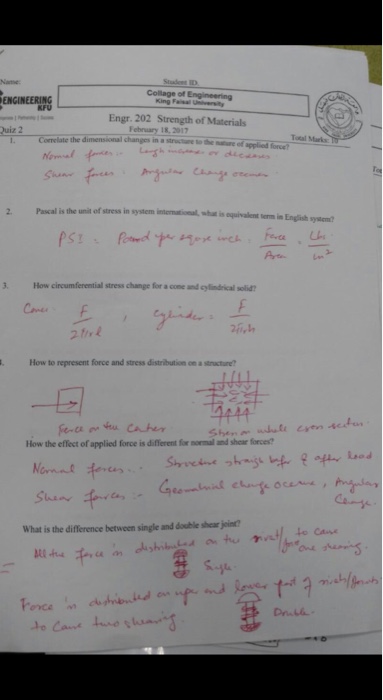 Name:
Student ID.
ENGINEERING
KFU
College of Engineering
King Faisal University
Engr. 202 Strength of Materials
Quiz 2
February 18, 2017
Total Marks: 10
1. Correlate the dimensional changes in a structure to the nature of applied force?
Normal forces. Length increase or decrease
Shear forces. Angular Change occur
2. Pascal is the unit of stress in system international, what is equivalent term in English system?
PSI, Pound per square inch, Force/Area, Lbs/in²
3. How circumferential stress change for a cone and cylindrical solid?
Cone: F , cylinder: F
How to represent force and stress distribution on a structure?
Force on the Center
Stress on whole cross section
How the effect of applied force is different for normal and shear forces?
Normal forces: Structure straight before & after load
Shear forces: Geometrical change occur, Angular
Change.
What is the difference between single and double shear joint?
All the force is distributed on the rivet/ to cause
one shearing.
Single.
Force is distributed on upper and lower part of rivet/
to cause two shearing.
Double.